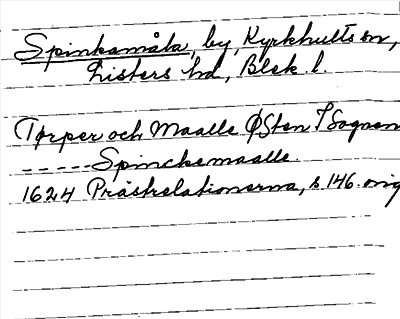 Spinkamåla, by, Kyrkhults sn,
Listers hd, Blek. l.
Torper och Maalle ØSten I Sognen
-----Spinckemaalle.
1624 Prästrelationerna, s. 146. orig